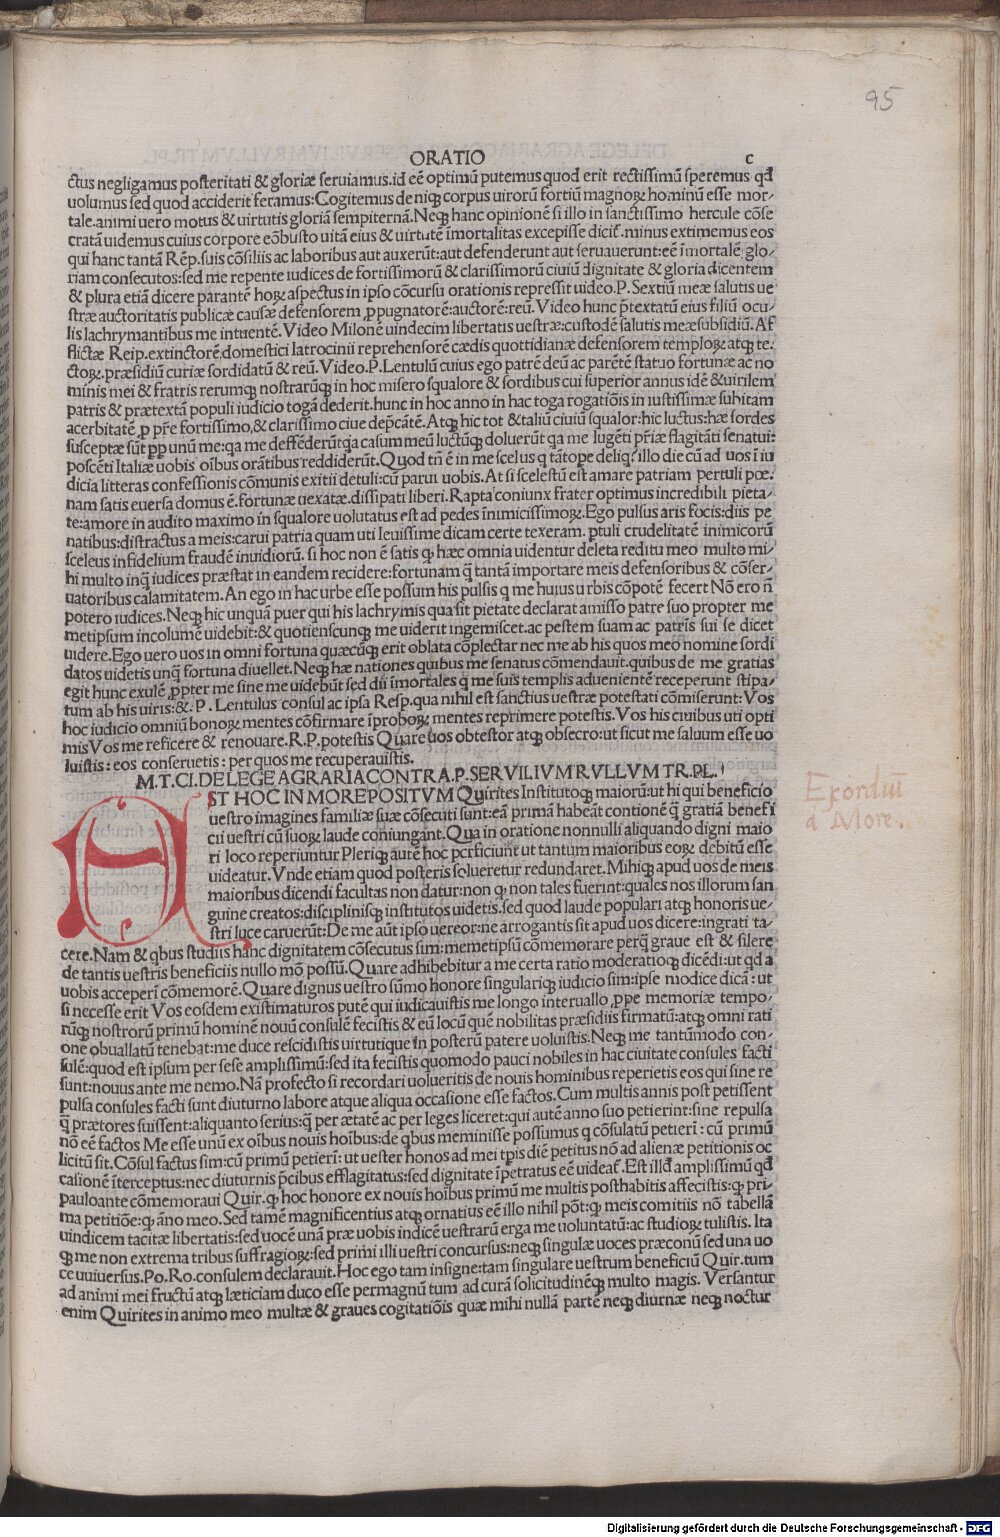 95
ORATIO c
ctus negligamus posteritati & gloriæ seruiamus.id eē optimū putemus quod erit rectissimū speremus qđ
uolumus sed quod acciderit feramus:Cogitemus deniqꝫ corpus uirorū fortiū magnoꝝ hominū esse mor-
tale.animi uero motus & uirtutis gloriā sempiternā.Neqꝫ hanc opinionē si illo in sanctissimo hercule cōse
cratā uidemus cuius corpore eōbusto uitā eius & uirtutē īmortalitas excepisse dicit̄.minus extimemus eos
qui hanc tantā Rēp.suis cōsiliis ac laboribus aut auxerūt:aut defenderunt aut seruauerunt:eē īmortalē glo-
riam consecutos:sed me repente iudices de fortissimorū & clarissimorū ciuiū dignitate & gloria dicentem
& plura etiā dicere parantē hoꝝ aspectus in ipso cōcursu orationis repressit uideo.P.Sextiū meæ salutis ue
stræ auctoritatis publicæ causæ defensorem ꝓpugnatorē:auctorē:reū.Video hunc p̄textatū eius filiū ocu-
lis lachrymantibus me intuentē.Video Milonē uindecim libertatis uestræ:custodē salutis meæ subsidiū.Af
flictæ Reip.extinctorē domestici latrocinii reprehensorē cædis quottidianæ defensorem temploꝝ atqꝫ te.
ctoꝝ.præsidiū curiæ sordidatū & reū.Video.P.Lentulū cuius ego patrē deū ac parētē statuo fortunæ ac no
minis mei & fratris rerumqꝫ nostrarūqꝫ in hoc misero squalore & sordibus cui superior annus idē & uirilem
patris & prætextā populi iudicio togā dederit.hunc in hoc anno in hac toga rogatiōis in iustissimæ subitam
acerbitatē ꝓ pr̄e fortissimo,& clarissimo ciue dep̄cātē.Atqꝫ hic tot & taliū ciuiū squalor:hic luctus:hæ sordes
susceptæ sūt ꝓpp̄ unū me:qa me deffēderūt qa casum meū luctūqꝫ doluerūt qa me lugēti pr̄iæ flagitāti senatui:
poscēti Italiæ uobis oībus orātibus reddiderūt.Quod tn̄ ē in me scelus q tātope deliq? illo die cū ad uos ī iu
dicia litteras confessionis cōmunis exitii detuli:cū parui uobis.At si scelestū est amare patriam pertuli pœ.
nam satis euersa domus ē.fortunæ uexatæ.dissipati liberi.Rapta coniunx frater optimus incredibili pieta-
te:amore in audito maximo in squalore uolutatus est ad pedes īnimicissimoꝝ.Ego pulsus aris focis:diis pe
natibus:distractus a meis:carui patria quam uti leuissime dicam certe texeram. ꝑtuli crudelitatē inimicorū
sceleus infidelium fraudē inuidiorū. si hoc non ē satis qꝫ hæc omnia uidentur deleta reditu meo multo mi-
hi multo inq̄ iudices præstat in eandem recidere:fortunam q̄ tantā importare meis defensoribus & cōser-
uatoribus calamitatem.An ego in hac urbe esse possum his pulsis q me huius urbis cōpotē fecert Nō ero n̄
potero iudices.Neqꝫ hic unquā puer qui his lachrymis qua sit pietate declarat amisso patre suo propter me
metipsum incolumē uidebit:& quotienscunqꝫ me uiderit ingemiscet.ac pestem suam ac patris sui se dicet
uidere.Ego uero uos in omni fortuna quæcūqꝫ erit oblata cōplectar nec me ab his quos meō nomine sordi
datos uidetis unq̄ fortuna diuellet.Neqꝫ hæ nationes quibus me senatus cōmendauit.quibus de me gratias
egit hunc exulē ꝓpter me sine me uidebūt sed dii īmortales q̄ me suis templis aduenientē receperunt stipa-
tum ab his uiris:&.P.Lentulus consul ac ipsa Resp.qua nihil est sanctius uestræ potestati cōmiserunt:Vos
hoc iudicio omniū bonoꝝ mentes cōfirmare īproboꝝ mentes reprimere potestis.Vos his ciuibus uti opti
mis Vos me reficere & renouare.R.P.potestis Quare uos obtestor atqꝫ obsecro:ut sicut me saluum esse uo
luistis:eos conseruetis:per quos me recuperauistis.
M.T.CI.DE LEGE AGRARIA CONTRA.P.SERVILIVM RVLLVM TR.PL.
ST HOC IN MORE POSITVM Quirites Institutoqꝫ maiorū:ut hi qui beneficio
uestro imagines familiæ suæ cōsecuti sunt:eā primā habeāt contionē q̄ gratiā benefi
cii uestri cū suoꝝ laude coniungant.Qua in oratione nonnulli aliquando digni maio
ri loco reperiuntur Pleriqꝫ autē hoc perficiunt ut tantum maioribus eoꝝ debitū esse
uideatur.Vnde etiam quod posteris solueretur redundaret.Mihiqꝫ apud uos de meis
maioribus dicendi facultas non datur:non qꝫ non tales fuerint:quales nos illorum san
guine creatos:disciplinisqꝫ institutos uidetis.sed quod laude populari atqꝫ honoris ue-
stri luce caruerūt:De me aūt ipso uereor:ne arrogantis sit apud uos dicere:ingrati ta-
cere.Nam & qbus studiis hanc dignitatem cōsecutus sim:memetipsū cōmemorare perq̄ graue est & silere
de tantis uestris beneficiis nullo mō possū.Quare adhibebitur a me certa ratio moderatioqꝫ dicēdi:ut qđ a
uobis acceperī cōmemorē.Quare dignus uestro sūmo honore singulariqꝫ iudicio sim:ipse modice dicā:ut
si necesse erit Vos eosdem existimaturos putē qui iudicauistis me longo interuallo ꝓpe memoriæ tempo-
rūqꝫ nostrorū primū hominē nouū consulē fecistis & eū locū quē nobilitas præsidiis firmatū:atqꝫ omni rati
one obuallatū tenebat:me duce rescidistis uirtutique in posterū patere uoluistis.Neqꝫ me tantūmodo con-
sulē:quod est ipsum per sese amplissimū:sed ita fecistis quomodo pauci nobiles in hac ciuitate consules facti
sunt:nouus ante me nemo.Nā profecto si recordari uolueritis de nouis hominibus reperietis eos qui sine re
pulsa consules facti sunt diuturno labore atque aliqua occasione esse factos.Cum multis annis post petissent
q̄ prætores fuissent:aliquanto serius:q̄ per ætatē ac per leges liceret:qui autē anno suo petierint:sine repulsa
nō eē factos Me esse unū ex oībus nouis hoībus:de qbus meminisse possumus q cōsulatū petierī:cū primū
licitū sit.Cōsul factus sim:cū primū petierī:ut uester honos ad mei tp̄is diē petitus nō ad alienæ petitionis oc
casionē īterceptus:nec diuturnis p̄cibus efflagitatus:sed dignitate īpetratus eē uideat̄.Est illđ amplissimū qđ
pauloante cōmemoraui Quir.qꝫ hoc honore ex nouis hoībus primū me multis posthabitis affecistis:qꝫ pri-
ma petitiōe:qꝫ āno meo.Sed tamē magnificentius atqꝫ ornatius eē illo nihil pōt:qꝫ meis comitiis nō tabellā
uindicem tacitæ libertatis:sed uocē unā præ uobis indicē uestrarū erga me uoluntatū:ac studioꝝ tulistis. Ita
qꝫ me non extrema tribus suffragioꝝ:sed primi illi uestri concursus:neqꝫ singulæ uoces præconū sed una uo
ce uuiuersus.Po.Ro.consulem declarauit.Hoc ego tam insigne:tam singulare uestrum beneficiū Quir.tum
ad animi mei fructū atqꝫ læticiam duco esse permagnū tum ad curā solicitudinēqꝫ multo magis. Versantur
enim Quirites in animo meo multæ & graues cogitatiōis quæ mihi nullā partē neqꝫ diurnæ neqꝫ noctur
Exordiū
a More.
Digitalisierung gefördert durch die Deutsche Forschungsgemeinschaft - DFG